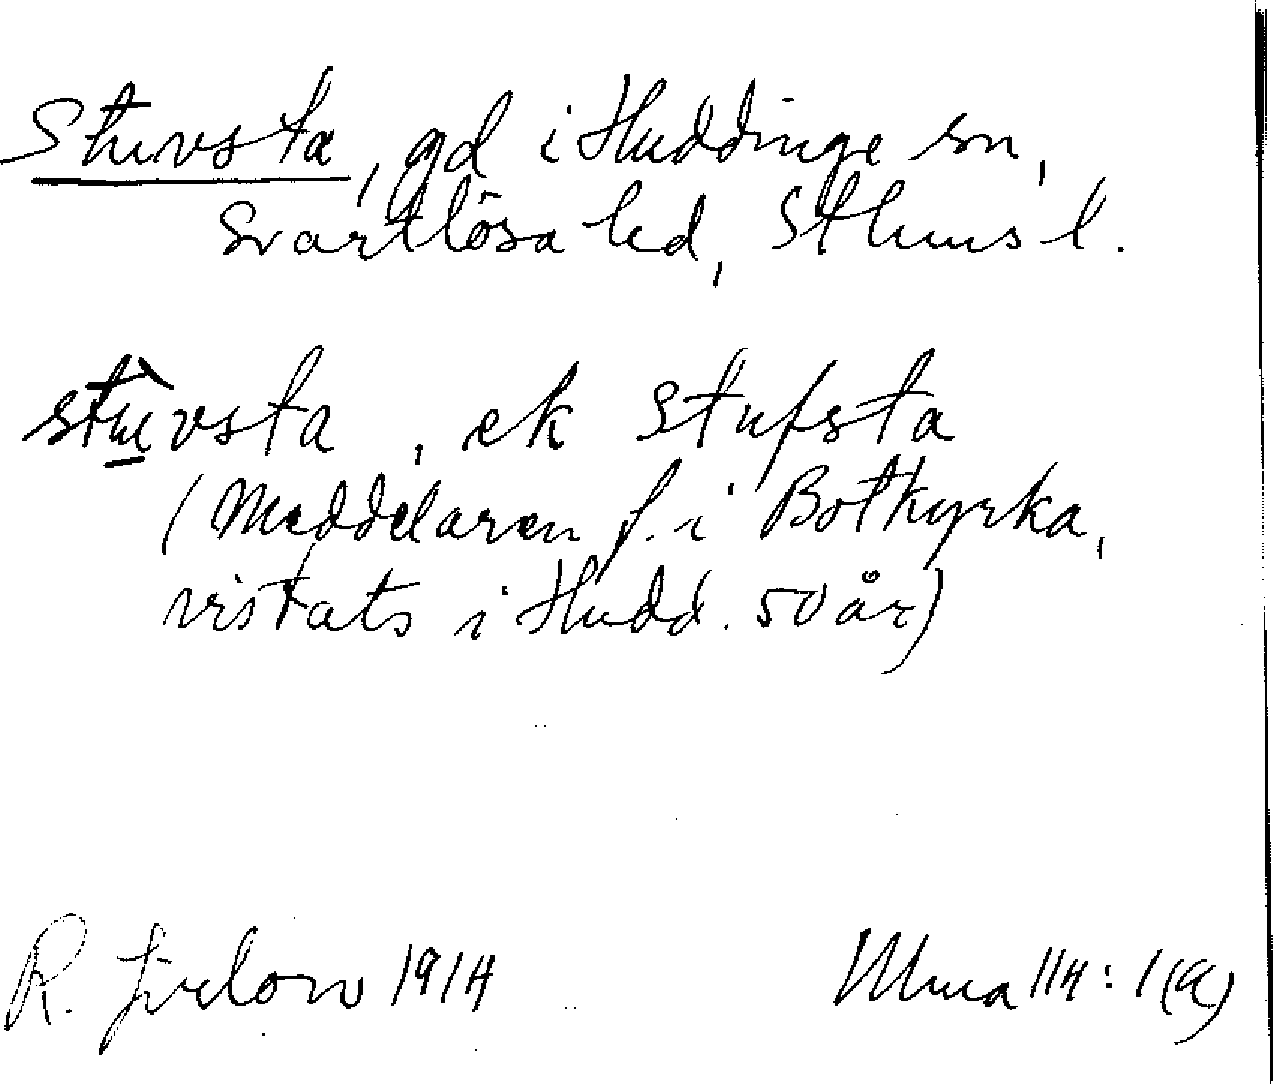 Stuvsta, gd i Huddinge sn,
Svartlösa hd, Sthms l.
stùvsta, ek Stufsta
(Meddelaren f. i Botkyrka,
vistats i Hudd. 50 år)
R. Jirlow 1914
114:1(a)